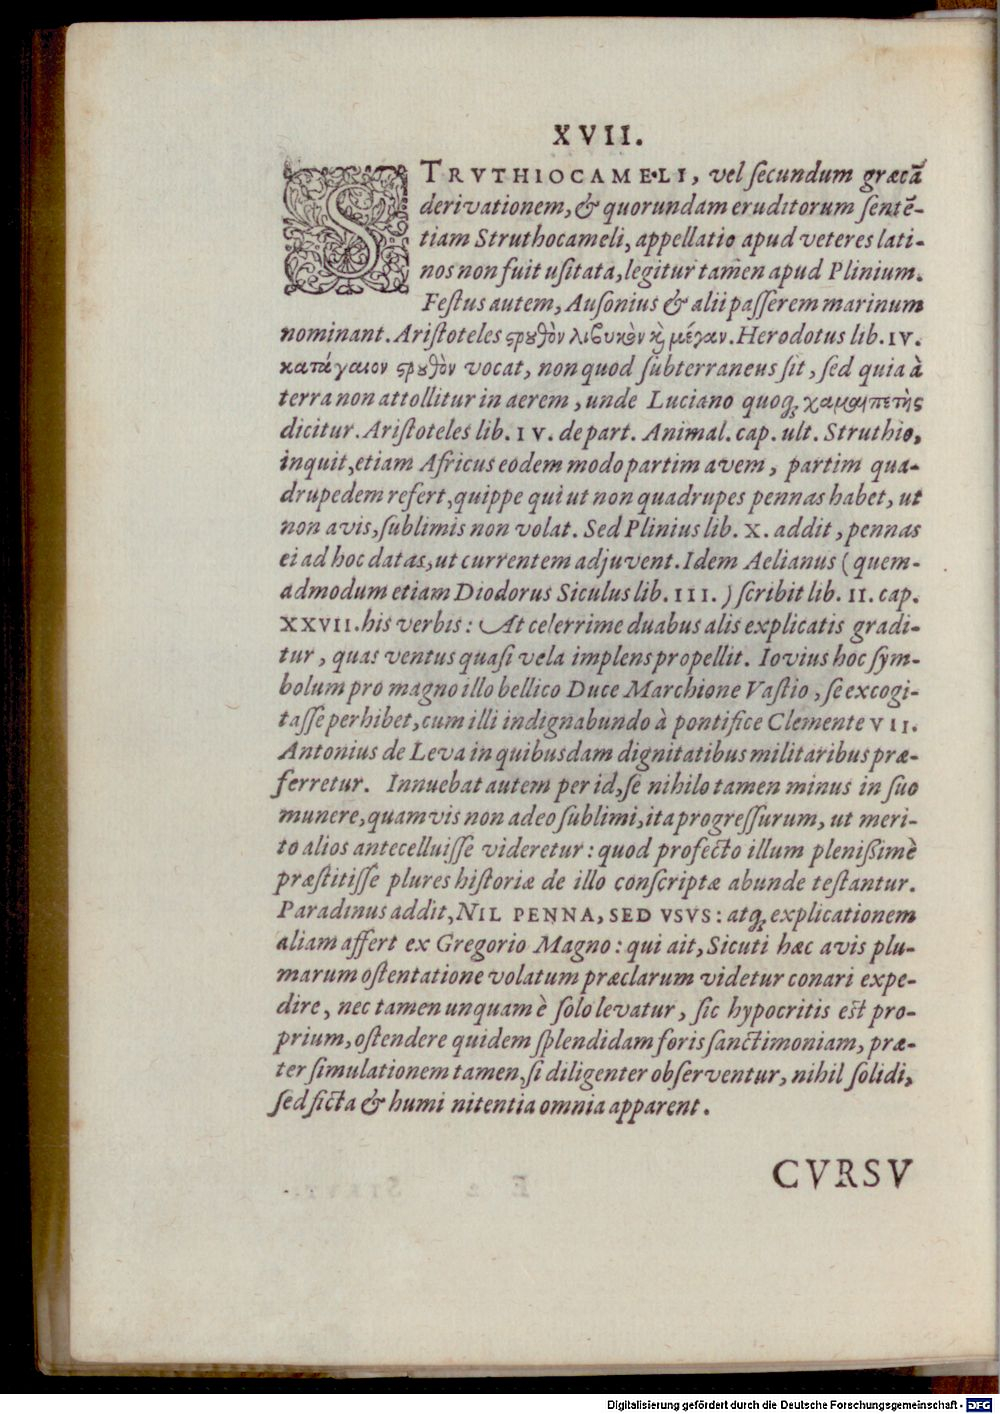 XVII.
STRVTHIOCAMELI, vel ſecundum græcã
derivationem, & quorundam eruditorum ſentẽ-
tiam Struthocameli, appellatio apud veteres lati-
nos non fuit uſitata, legitur tamen apud Plinium.
Feſtus autem, Auſonius & alii paſſerem marinum
nominant. Ariſtoteles ϛρȣθὸν λιβυκὸν κὶ μέγαν. Herodotus lib. IV.
κατάγαιον ϛρȣθὸν vocat, non quod ſubterraneus ſit, ſed quia à
terra non attollitur in aerem, unde Luciano quoq; χαμαιπετὴς
dicitur. Ariſtoteles lib. IV. de part. Animal. cap. ult. Struthio,
inquit, etiam Africus eodem modo partim avem, partim qua-
drupedem refert, quippe qui ut non quadrupes pennas habet, ut
non avis, ſublimis non volat. Sed Plinius lib. X. addit, pennas
ei ad hoc datas, ut currentem adjuvent. Idem Aelianus (quem-
admodum etiam Diodorus Siculus lib. III.) ſcribit lib. II. cap.
XXVII. his verbis: At celerrime duabus alis explicatis gradi-
tur, quas ventus quaſi vela implens propellit. Iovius hoc ſym-
bolum pro magno illo bellico Duce Marchione Vaſtio, ſe excogi-
taſſe perhibet, cum illi indignabundo à pontifice Clemente VII.
Antonius de Leva in quibusdam dignitatibus militaribus præ-
ferretur. Innuebat autem per id, ſe nihilo tamen minus in ſuo
munere, quamvis non adeo ſublimi, ita progreſſurum, ut meri-
to alios antecelluiſſe videretur: quod profecto illum plenißimè
præſtitiſſe plures hiſtoriæ de illo conſcriptæ abunde teſtantur.
Paradinus addit, NIL PENNA, SED VSVS: atq; explicationem
aliam affert ex Gregorio Magno: qui ait, Sicuti hæc avis plu-
marum oſtentatione volatum præclarum videtur conari expe-
dire, nec tamen unquam è ſolo levatur, ſic hypocritis eſt pro-
prium, oſtendere quidem ſplendidam foris ſanctimoniam, præ-
ter ſimulationem tamen, ſi diligenter obſerventur, nihil ſolidi,
ſed ficta & humi nitentia omnia apparent.
CVRSV
Digitalisierung gefördert durch die Deutsche Forschungsgemeinschaft - DFG